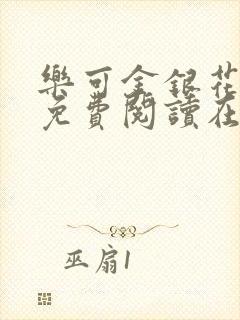 樂可金銀花
免費閱讀在
巫扇1